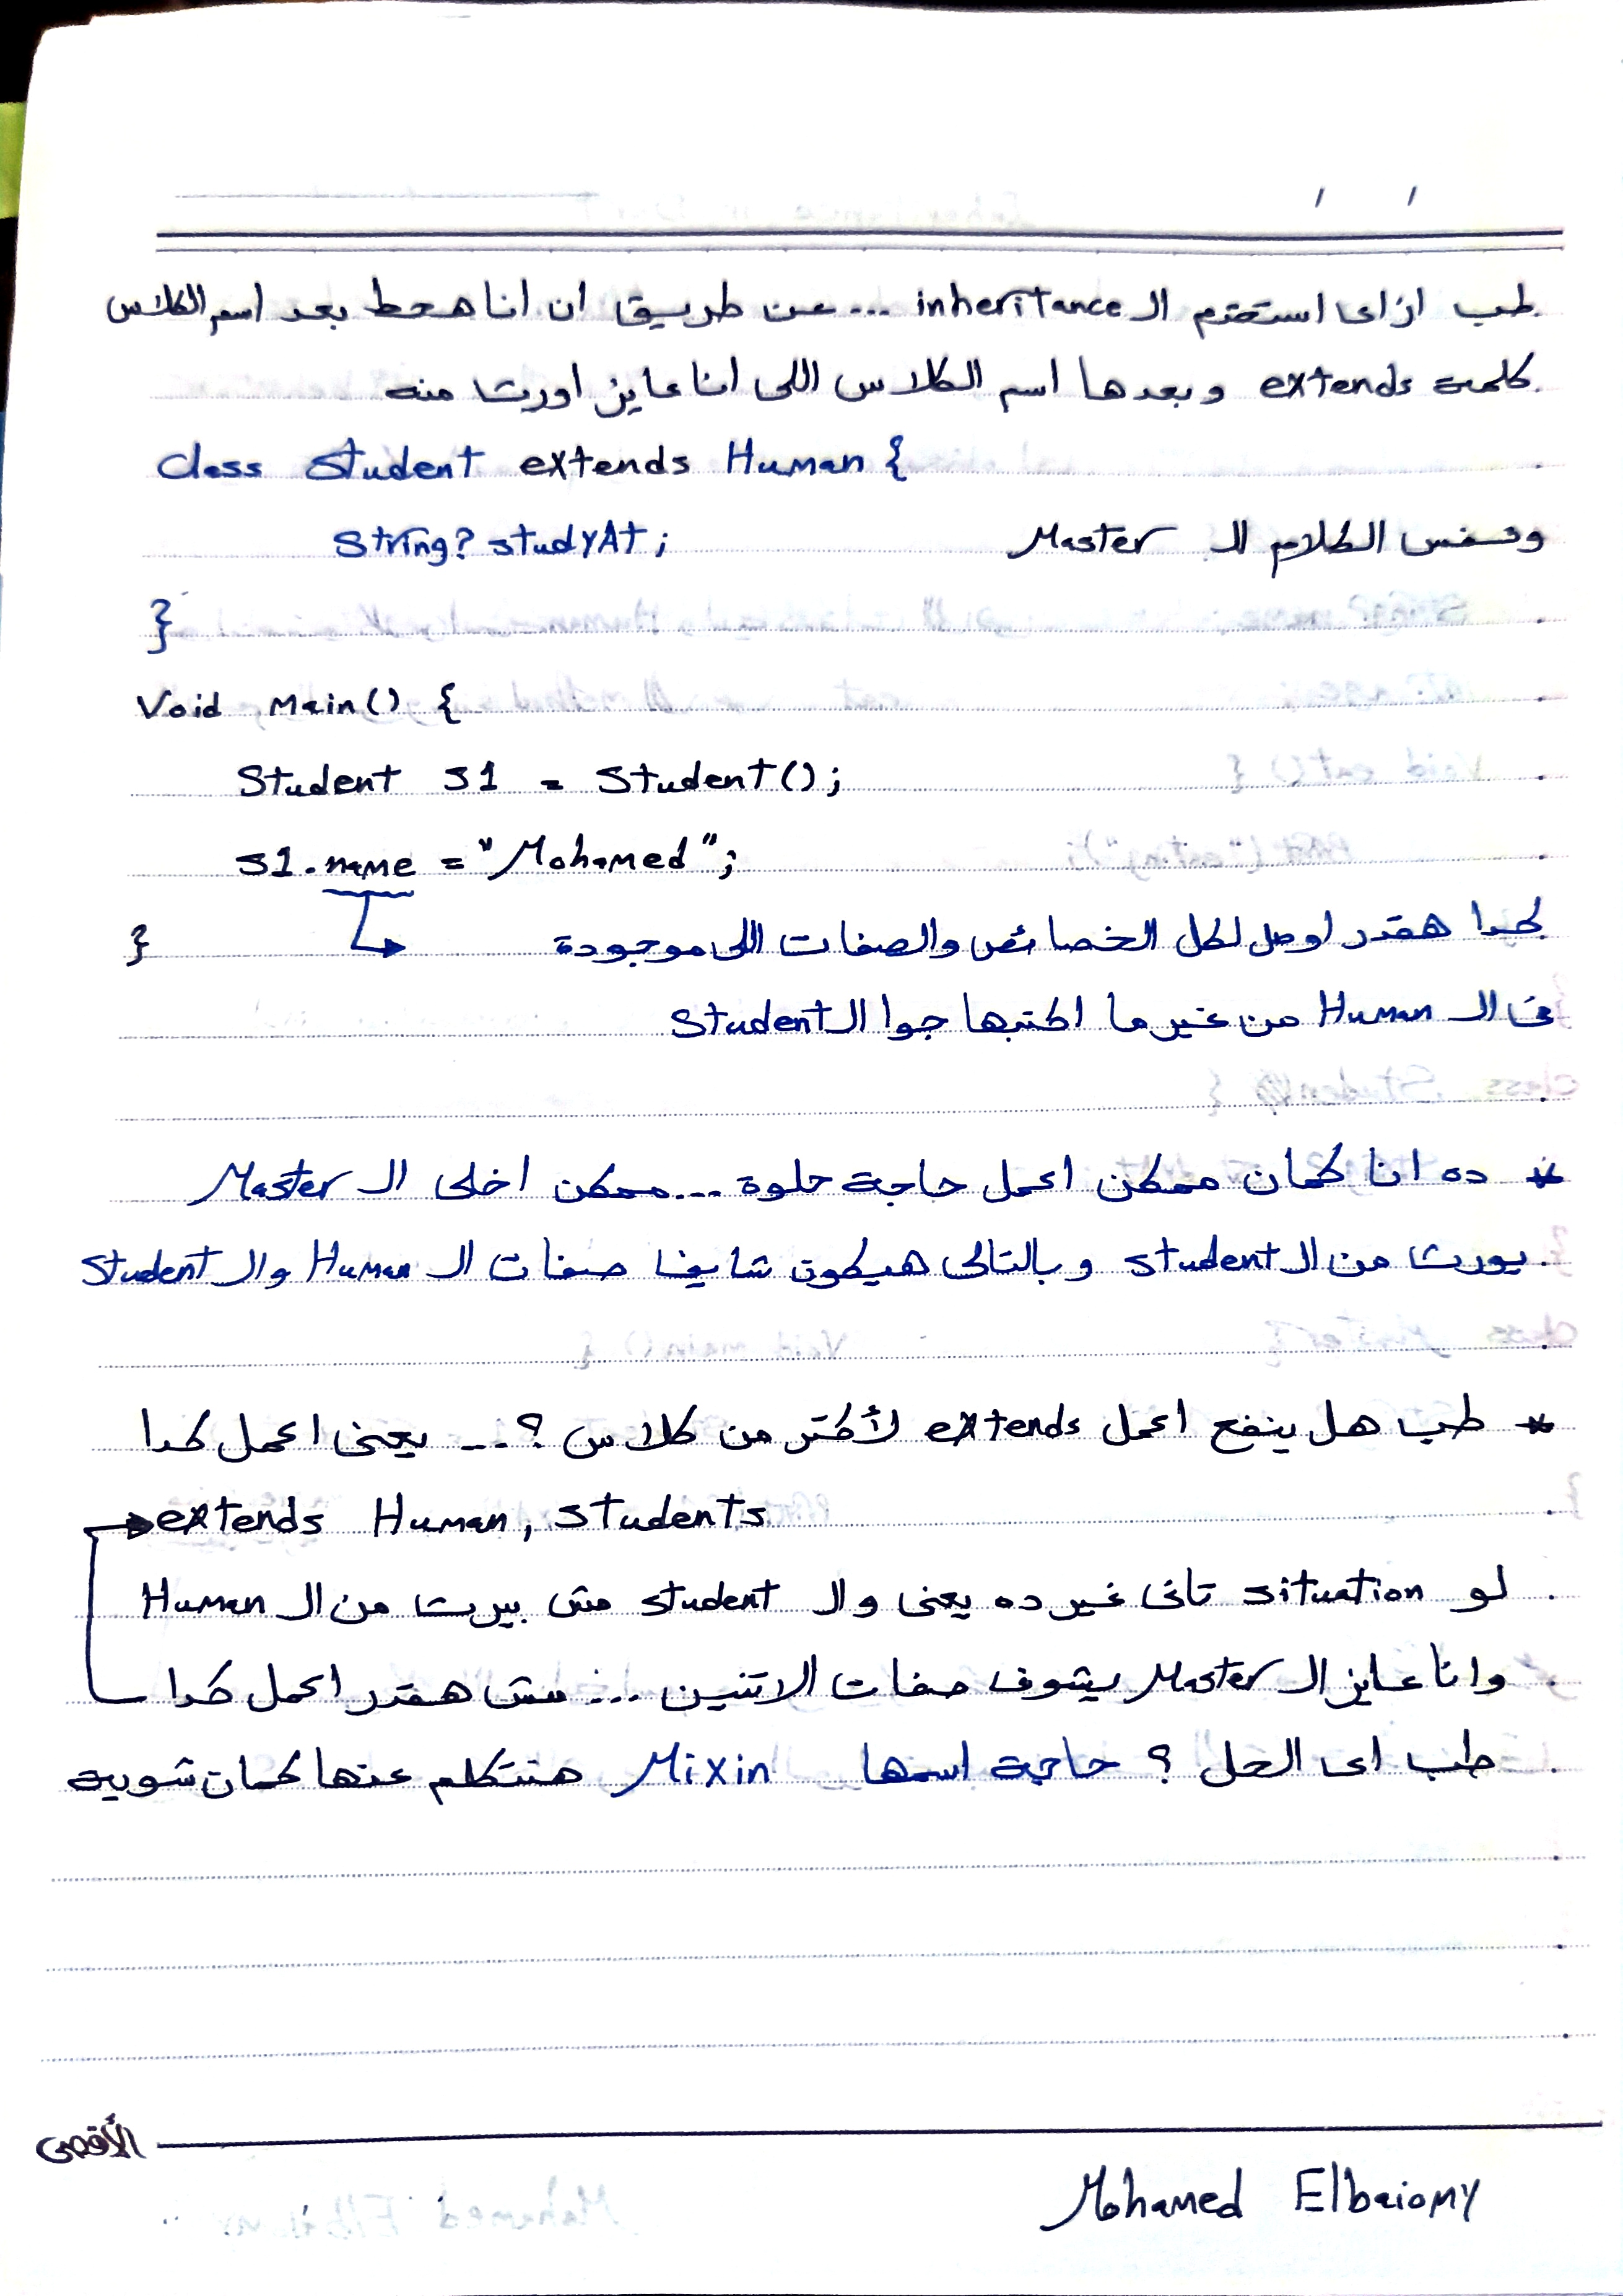 طب ازاى استخدم الـ inheritance ... عن طريق ان انا هحط بعد اسم الكلاس
كلمة extends وبعدها اسم الكلاس اللى انا عايز اورث منه
Class Student extends Human {
String? studyAt; ونفس الكلام الـ Master
}
Void Main() {
Student S1 = Student();
S1.name = "Mohamed";
} كدا هقدر اوصل لكل الخصائص والصفات اللى موجودة
فى الـ Human من غير ما اكتبها جوا الـ Student
* ده انا كمان ممكن اعمل حاجة حلوة ... ممكن اخلى الـ Master
يورث من الـ Student وبالتالى هيكون شايف صفات الـ Human والـ Student
* طب هل ينفع اعمل extends لأكتر من كلاس ؟ ... يعنى اعمل كدا
extends Human, Students
لو situation تانى غير ده يعنى والـ Student مش بيرث من الـ Human
وانا عايز الـ Master يشوف صفات الاتنين ... مش هقدر اعمل كدا
طب اى الحل ؟ حاجة اسمها Mixin هنتكلم عنها كمان شوية
الأقصى
Mohamed Elbaiomy